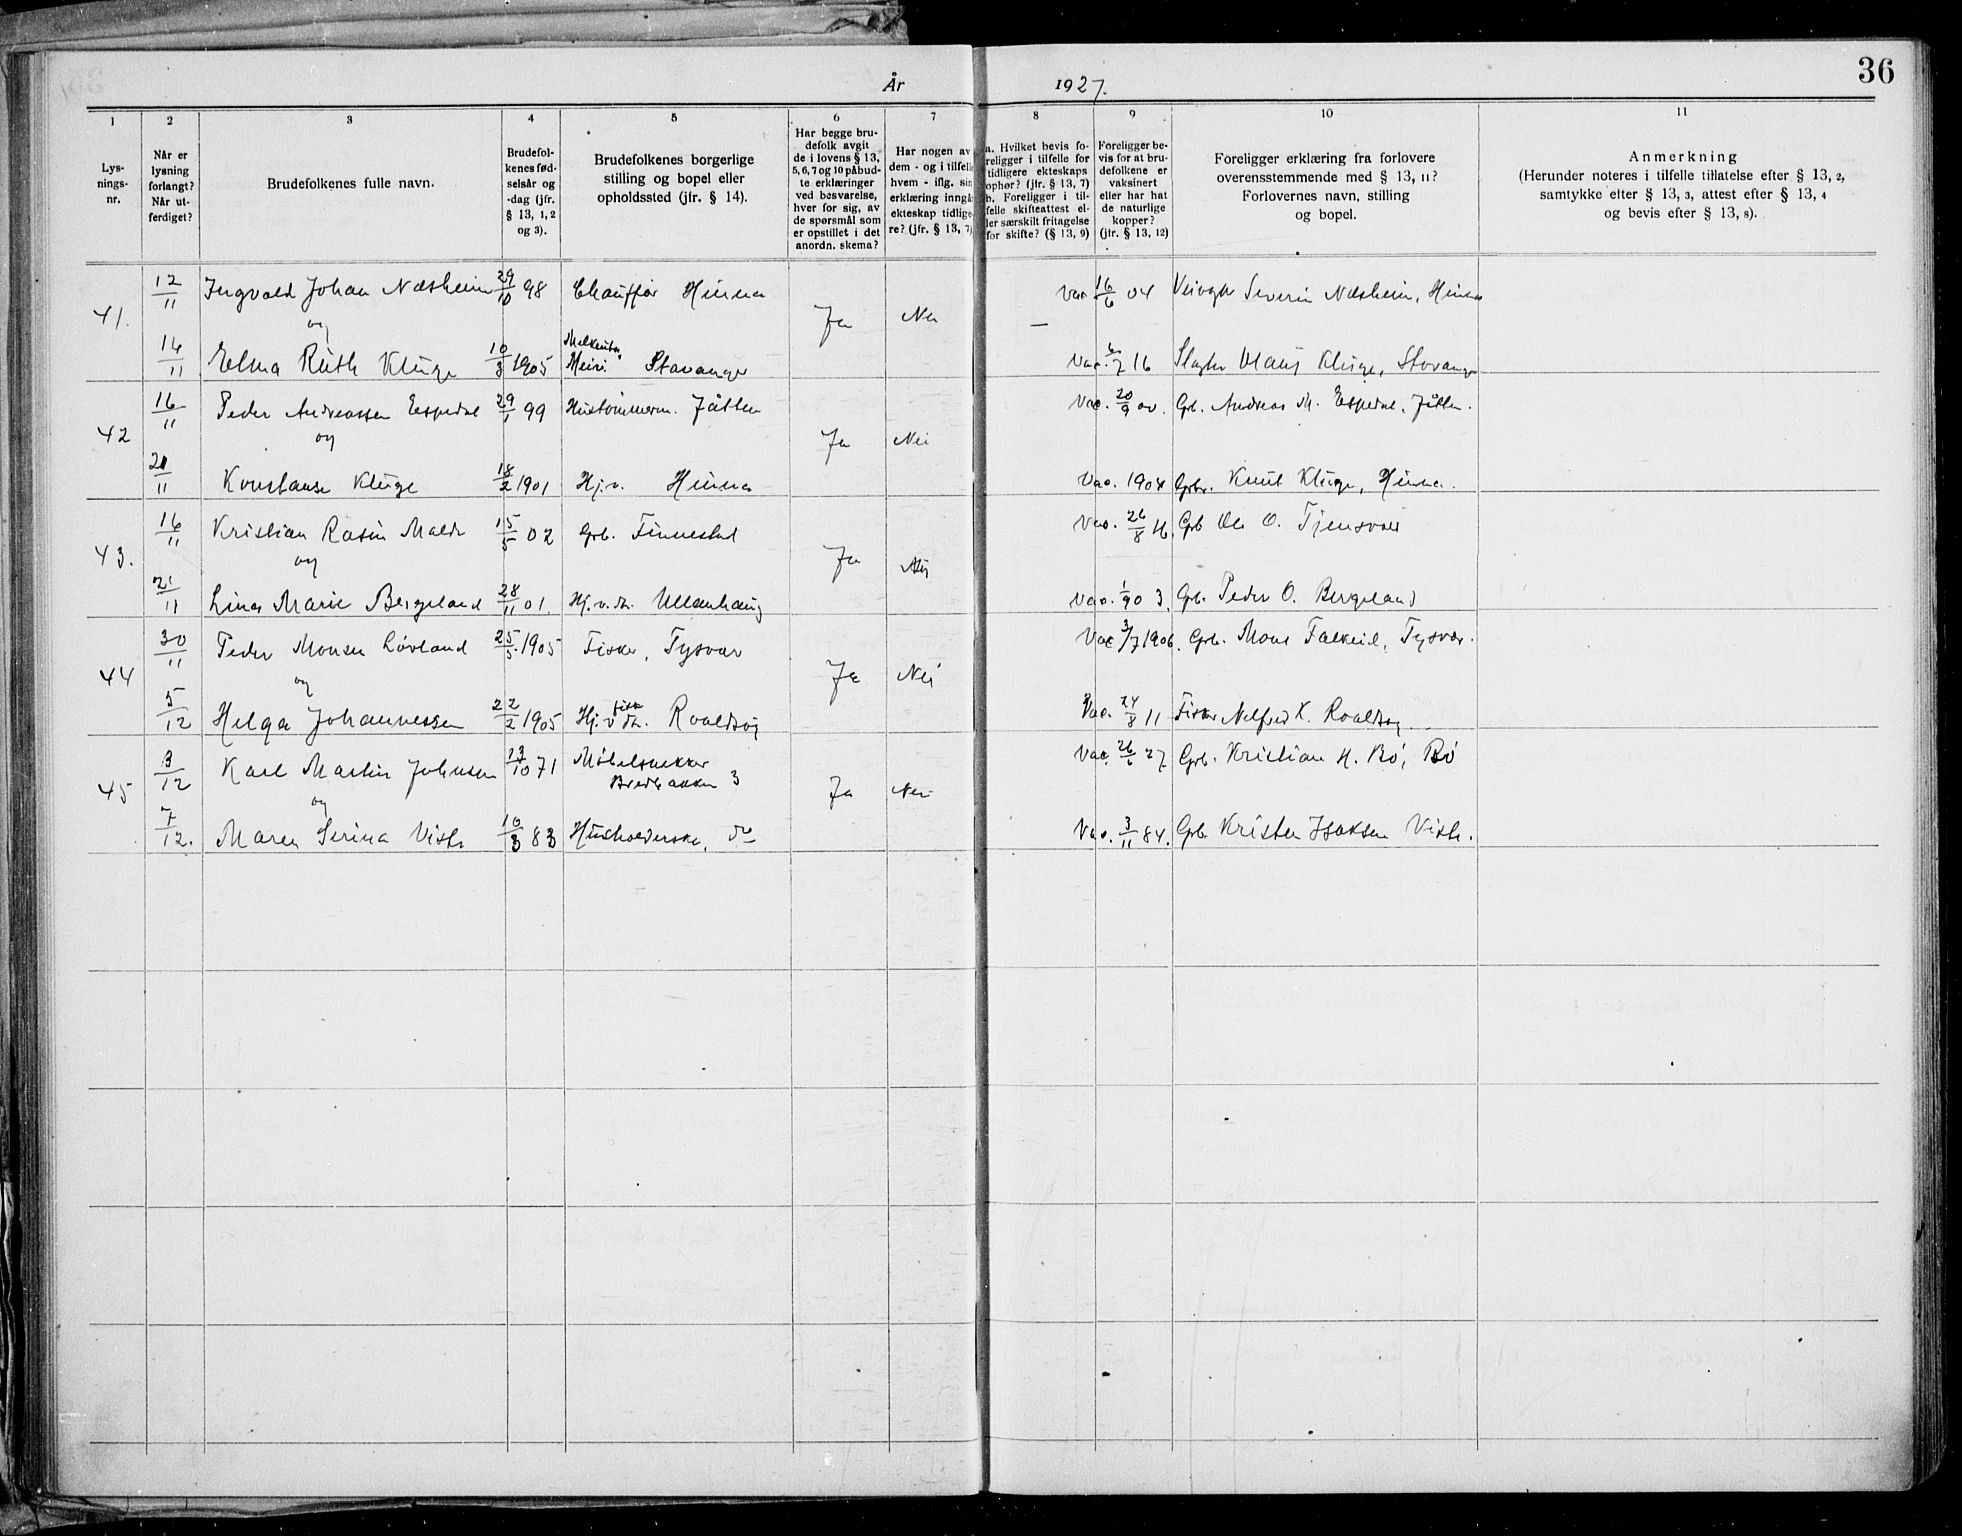 36
År 1927.
1 2 3 4 5 6 7 8 9 10 11
Lysnings-nr.
Når er lysning forlangt? Når utferdiget?
Brudefolkenes fulle navn.
Brudefolkenes fødselsår og -dag (jfr. § 13, 1, 2 og 3).
Brudefolkenes borgerlige stilling og bopel eller opholdssted (jfr. § 14).
Har begge brudefolk avgit de i lovens § 13, 5, 6, 7 og 10 påbudte erklæringer ved besvarelse, hver for sig, av de spørsmål som er opstillet i det anordn. skema?
Har nogen av dem - og i tilfelle hvem - iflg. sin erklæring inngå ekteskap tidligere? (jfr. § 13, 7)
a. Hvilket bevis foreligger i tilfelle for tidligere ekteskaps ophør? (jfr. § 13, 7) b. Foreligger i tilfelle skifteattest eller særskilt fritagelse for skifte? (§ 13, 9)
Foreligger bevis for at brudefolkene er vaksinert eller har hat de naturlige kopper? (jfr. § 13, 12)
Foreligger erklæring fra forlovere overensstemmende med § 13, 11? Forlovernes navn, stilling og bopel.
Anmerkning (Herunder noteres i tilfelle tillatelse efter § 13, 2, samtykke efter § 13, 3, attest efter § 13, 4 og bevis efter § 13, 8).
41. 12/11 Ingvald Johan Næsheim 29/10 98 Chauffør Hinna Ja Nei — Vac. 16/6 04 Severin Næsheim, Hinna
og
14/11 Elma Ruth Kluge 10/3 1905 Meieri Stavanger Vac. 6/7 16 Slagter Claus Kluge, Stavanger
42 16/11 Peder Andreassen Espedal 29/1 99 Hustømmerm. Jåtten Ja Nei Vac. 20/9 00. Gb. Andreas M. Espedal, Jåtten.
og
21/11 Konstanse Kluge 18/2 1901 Hj.v. Hinna Vac. 1904 Grbr. Knut Kluge, Hinna.
43. 16/11 Kristian Rasin Malde 15/5 02 Grb. Finnestad Ja Nei Vac. 26/8 16. Grb Ole O. Tjensvoll
og
21/11 Lina Marie Bergeland 28/11 01. Hj.v.dt. Ullenhaug Vac. 1/9 03. Grb. Peder O. Bergeland
44 30/11 Peder Monsen Løvland 25/5 1905 Fisker, Tysvær Ja Nei Vac 3/7 1906. Grb. Mons Falkeid, Tysvær.
og
5/12 Helga Johannessen 22/2 1905 Hj.v. fisk dt. Roaldsøy Vac. 24/8 11 Fisker K. Roaldsøy
45 3/12 Karl Martin Johnsen 13/10 71 Møbelsnekker Ja Nei Vac. 26/6 27. Grb. Kristian H. Bø, Bø
Bredbakken 3
og
7/12. Maren Serina Viste 10/3 83 Husholderske, do Vac. 3/11 84. Grb Kristen Isaksen Viste.